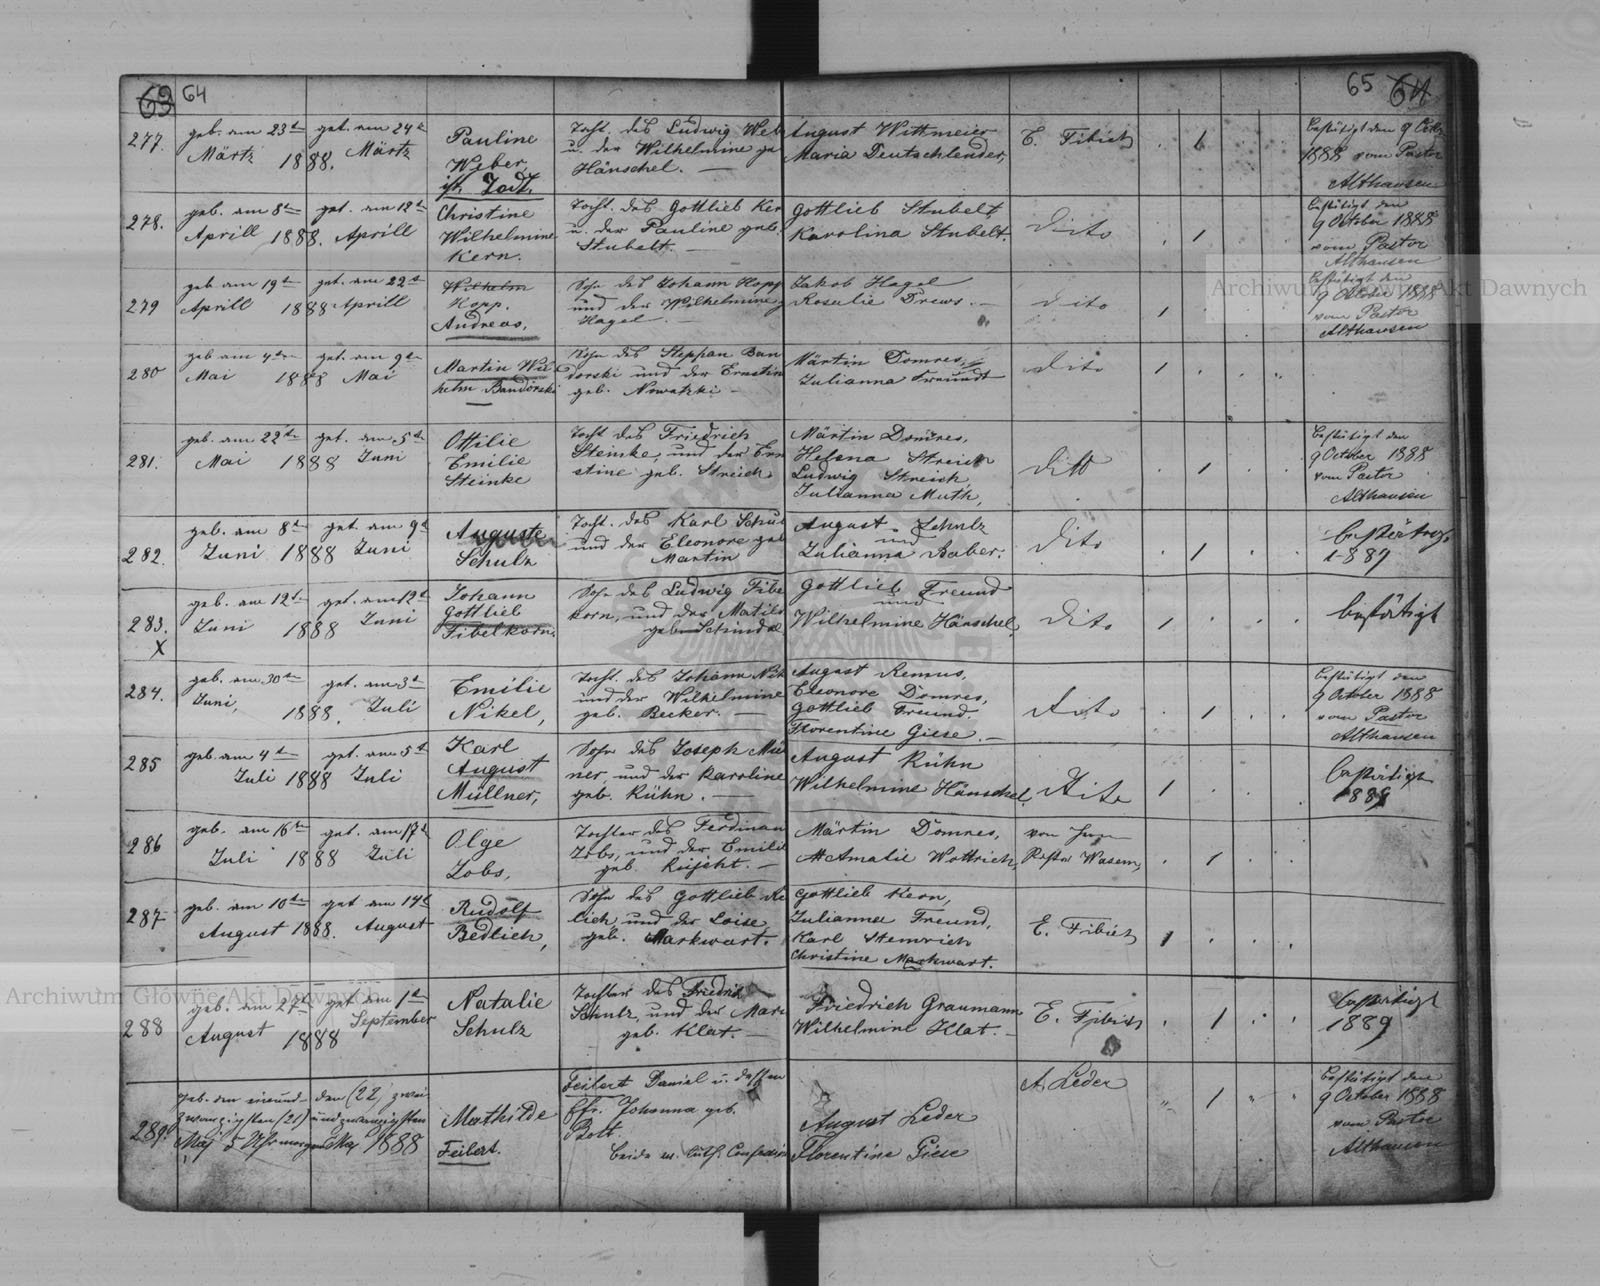 63 64
65 64
277. geb. am 23ten get. am 24t Pauline Tocht. des Ludwig Web August Wittmeier E. Fibich . 1 . . bestätigt den 9 Octb.
Märtz 1888. Märtz Weber, u. der Wilhelmine ge Maria Deutschlender, 1888 vom Pastor
ist Todt. Hänschel. — Althausen
278. geb. am 8ten get. am 12t Christine Tocht. des Gottlieb Ker Gottlieb Stubelt Dito . 1 bestätigt den
Aprill 1888. Aprill Wilhelmine u. der Pauline geb. Karolina Stubelt. 9 October 1888
Kern. Stubelt — vom Pastor
Althausen
279 geb am 19t get. am 22t Wilhelm Sohn des Johann Hopp Jakob Hagel Dito 1 . bestätigt den
Aprill 1888 Aprill Hopp. und der Wilhelmine g Rosalie Drews. — 9 October 1888
Andreas, Hagel. vom Pastor
Althausen
280 geb am 4ten get. am 9t Martin Wil Sohn des Steppan Ban Märtin Domres, Dito 1 . . .
Mai 1888 Mai helm Bandorski dorski und der Ernstin Julianna Freundt
geb. Nowatzki —
281. geb. am 22t get. am 5t Ottilie Tocht des Friedrich Märtin Domres, Dito . 1 . . bestätigt den
Mai 1888 Juni Emilie Steinke, und der Ern Helena Streich 9 October 1888
Steinke stine geb. Streich Ludwig Streich vom Pastor
Julianna Muth, Althausen
282. geb. am 8t get. am 9t Auguste Tocht. des Karl Schul August Schulz Dito . 1 . .
Juni 1888 Juni Schulz und der Eleonore geb und 1887
Martin Julianna Raber.
283. geb. am 12t get. am 12t Johann Sohn des Ludwig Fibe Gottlieb Freund Dito 1 . . . bestätigt
X Juni 1888 Juni Gottlieb korn, und der Matild und
Fibelkorn. geb. Schindel Wilhelmine Hänschel,
284. geb. am 30ten get. am 3t Emilie Tocht. des Johann Nik August Remus, Dito . 1 . . bestätigt den
Juni, 1888. Juli Nikel, und der Wilhelmine Eleonore Domres, 9 October 1888
geb. Becker. — Gottlieb Freund. vom Pastor
Florentine Giese. — Althausen
285 geb. am 4t get. am 5t Karl Sohn des Joseph Mül August Kühn Dito 1 . . bestätigt
Juli 1888 Juli August ner, und der Karoline Wilhelmine Hänschel, 1889
Müllner, geb. Kühn. —
286 geb. am 16ten get. am 17t Olge Tochter des Ferdinan Märtin Domres, von . 1 . .
Juli 1888 Juli Zobs, Zobs, und der Emilie Amalie Wottrich, Pastor Wasem,
geb.
287 geb. am 10ten get am 14t Rudolf Sohn des Gottlieb Be Gottlieb Kern, E. Fibich 1 . . .
August 1888. August Bedlich, lich, und der Loise Julianna Freund,
geb. Markwart. Karl
Christine Markwart.
288 geb. am 27t get am 1t Natalie Tochter des Friedrich Friedrich Graumann E. Fibich . 1 . . bestätigt
August 1888 September Schulz Schulz, und der Mari Wilhelmine Klat. — 1889
geb. Klat. —
289. geb. den einund- den (22) zwei Mathilde Feibert Daniel u. dessen August Leder A. Leder 1 bestätigt den
zwanzigsten (21) undzwanzigsten Feibert. Ehfr. Johanna geb. Florentine Giese 9 October 1888
Maj 5 Uhr morgens Maj 1888 Bott. vom Pastor
beide ev. luth. Confession Althausen
Archiwum Główne Akt Dawnych
Archiwum Główne Akt Dawnych